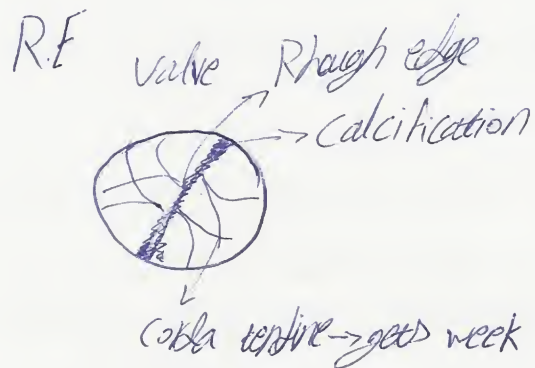 R.F
Valve Rhough edge
Calcification
Corda tendine → gets week